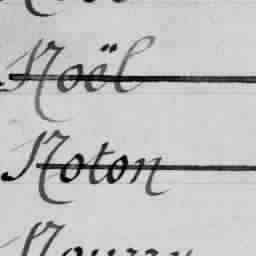 Noël
Noton